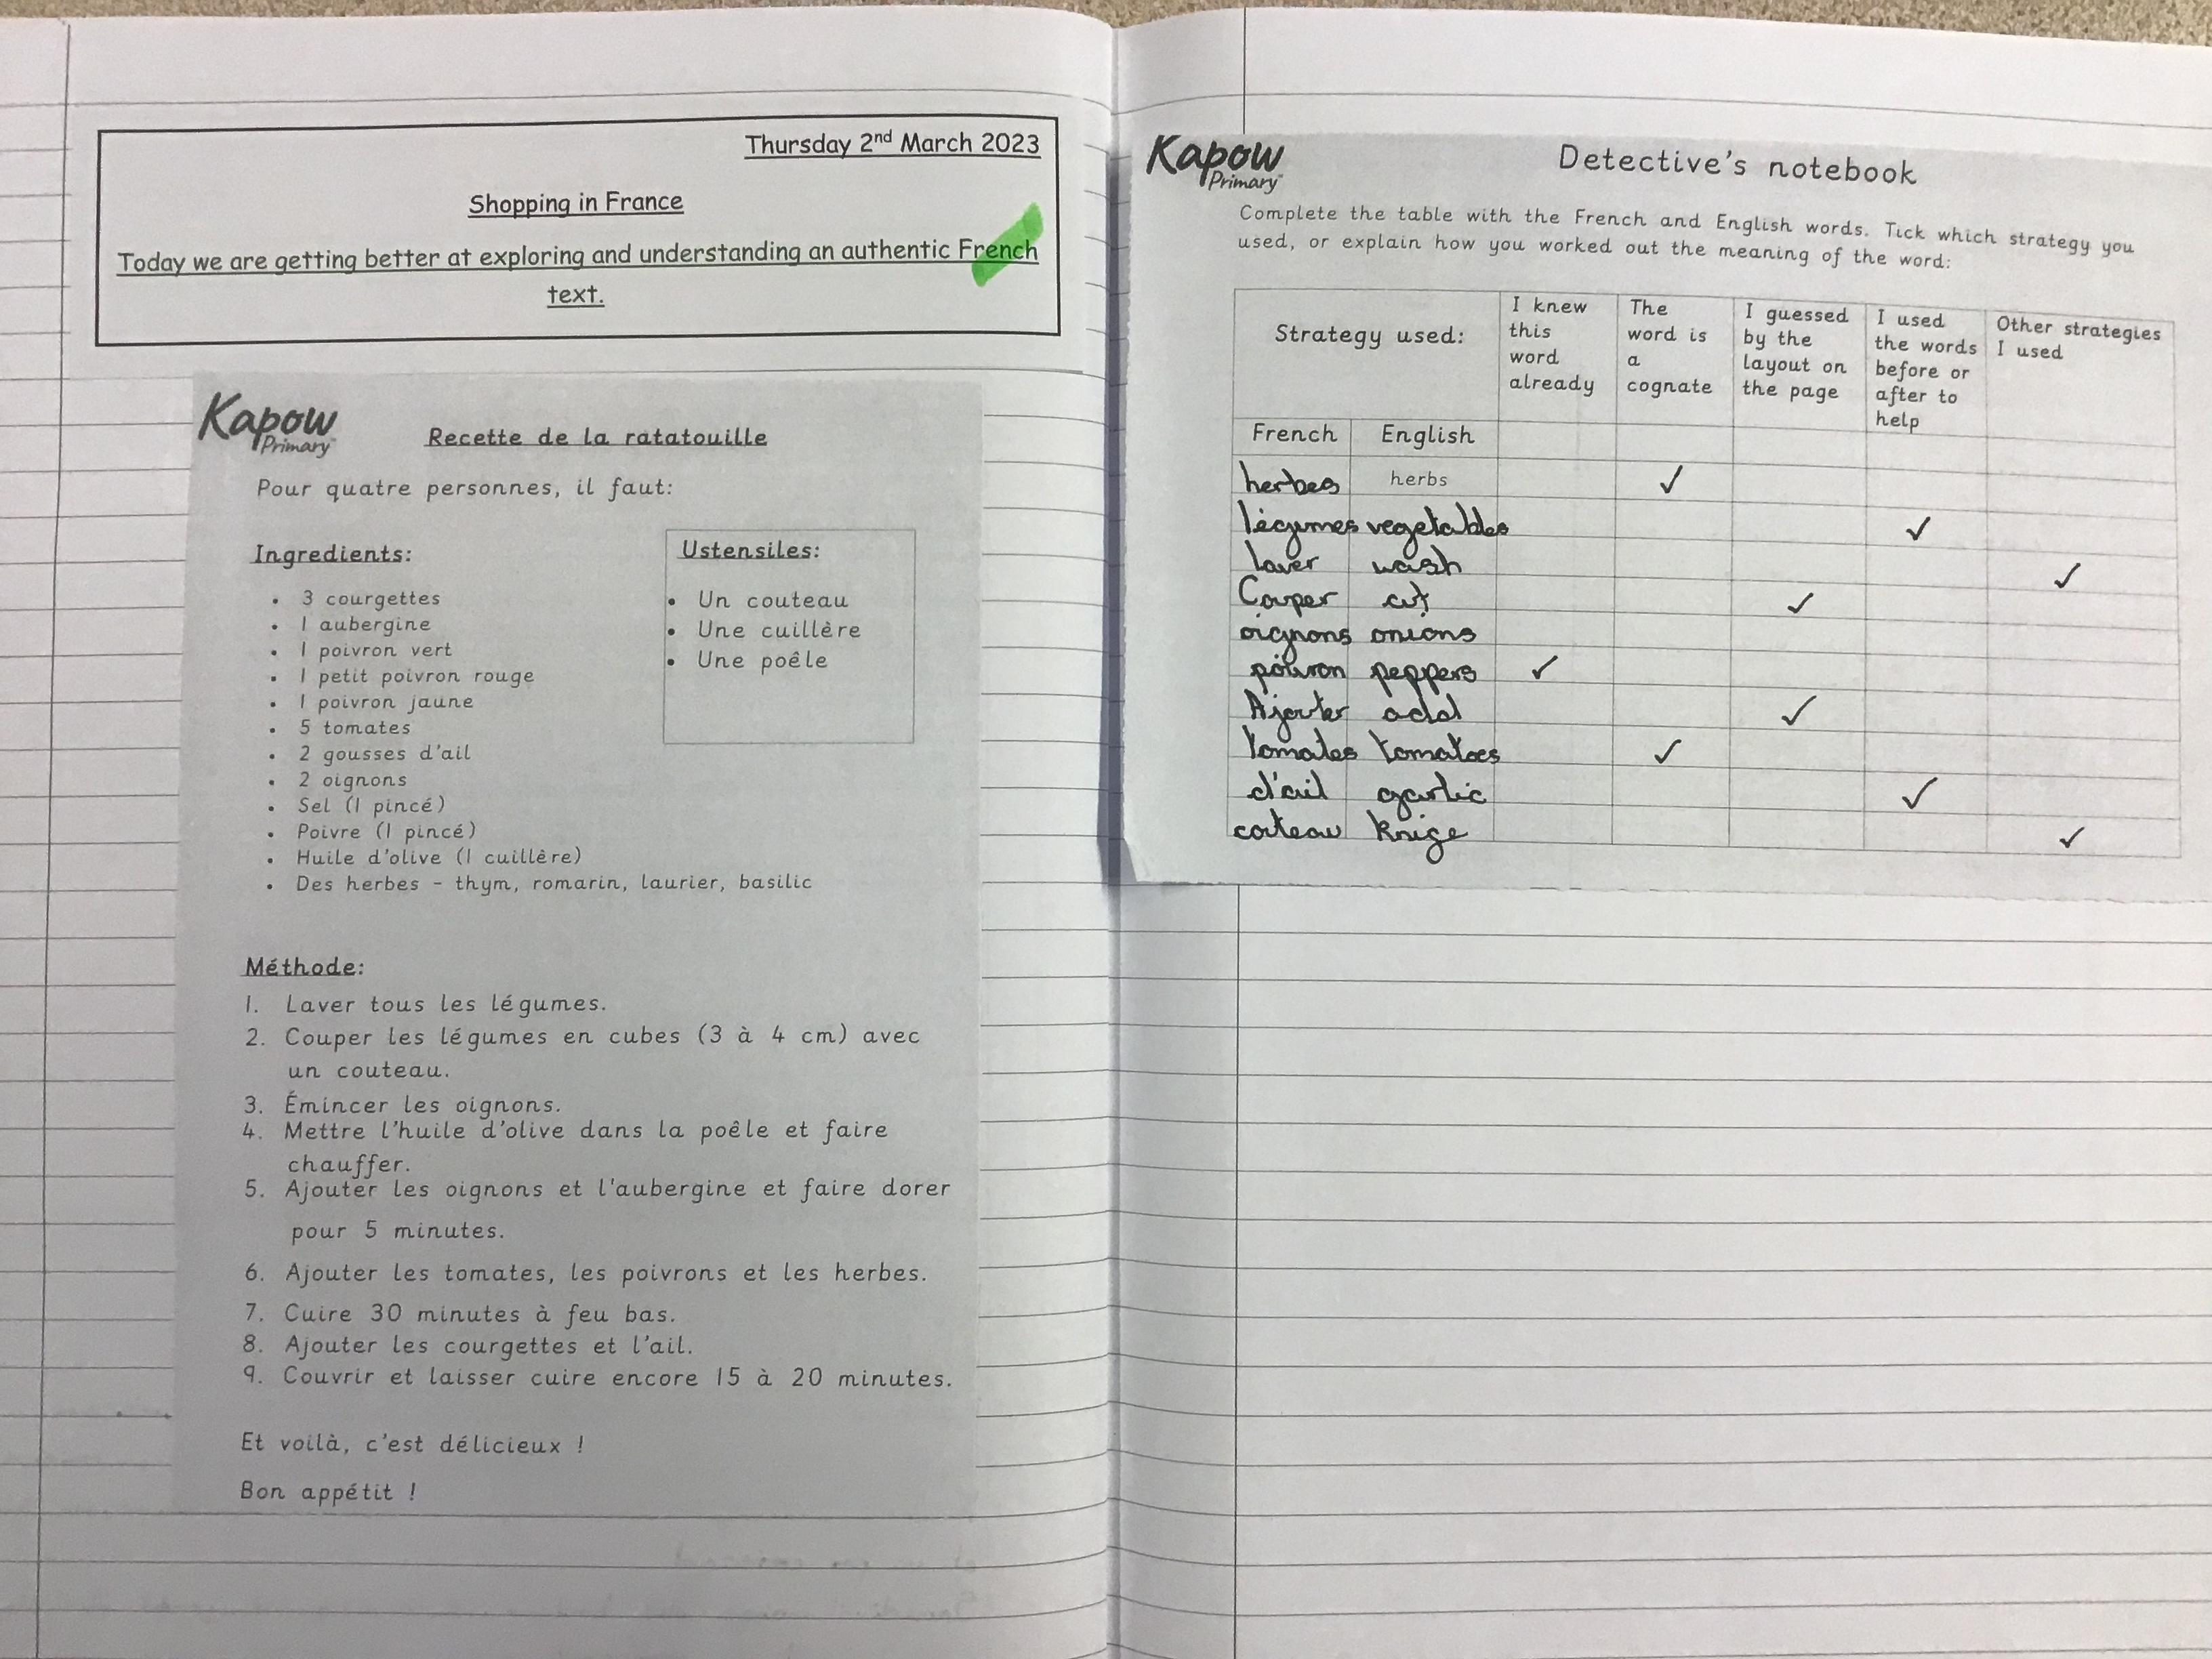 Thursday 2nd March 2023
Shopping in France
Today we are getting better at exploring and understanding an authentic French
text.
Kapow
Primary
Recette de la ratatouille
Pour quatre personnes, il faut:
Ingredients:
• 3 courgettes
• 1 aubergine
• 1 poivron vert
• 1 petit poivron rouge
• 1 poivron jaune
• 5 tomates
• 2 gousses d'ail
• 2 oignons
• Sel (1 pincé)
• Poivre (1 pincé)
• Huile d'olive (1 cuillère)
• Des herbes - thym, romarin, laurier, basilic
Ustensiles:
• Un couteau
• Une cuillère
• Une poêle
Méthode:
1. Laver tous les légumes.
2. Couper les légumes en cubes (3 à 4 cm) avec
un couteau.
3. Émincer les oignons.
4. Mettre l'huile d'olive dans la poêle et faire
chauffer.
5. Ajouter les oignons et l'aubergine et faire dorer
pour 5 minutes.
6. Ajouter les tomates, les poivrons et les herbes.
7. Cuire 30 minutes à feu bas.
8. Ajouter les courgettes et l'ail.
9. Couvrir et laisser cuire encore 15 à 20 minutes.
Et voilà, c'est délicieux !
Bon appétit !
Kapow
Primary
Detective's notebook
Complete the table with the French and English words. Tick which strategy you
used, or explain how you worked out the meaning of the word:
Strategy used:
I knew
this
word
already
The
word is
a
cognate
I guessed
by the
layout on
the page
I used
the words
before or
after to
help
Other strategies
I used
French English
herbes herbs ✓
légumes vegetables ✓
laver wash ✓
Couper cut ✓
oignons onions
poivron peppers ✓
Ajouter add ✓
tomates tomatoes ✓
d'ail garlic ✓
coteau knige ✓